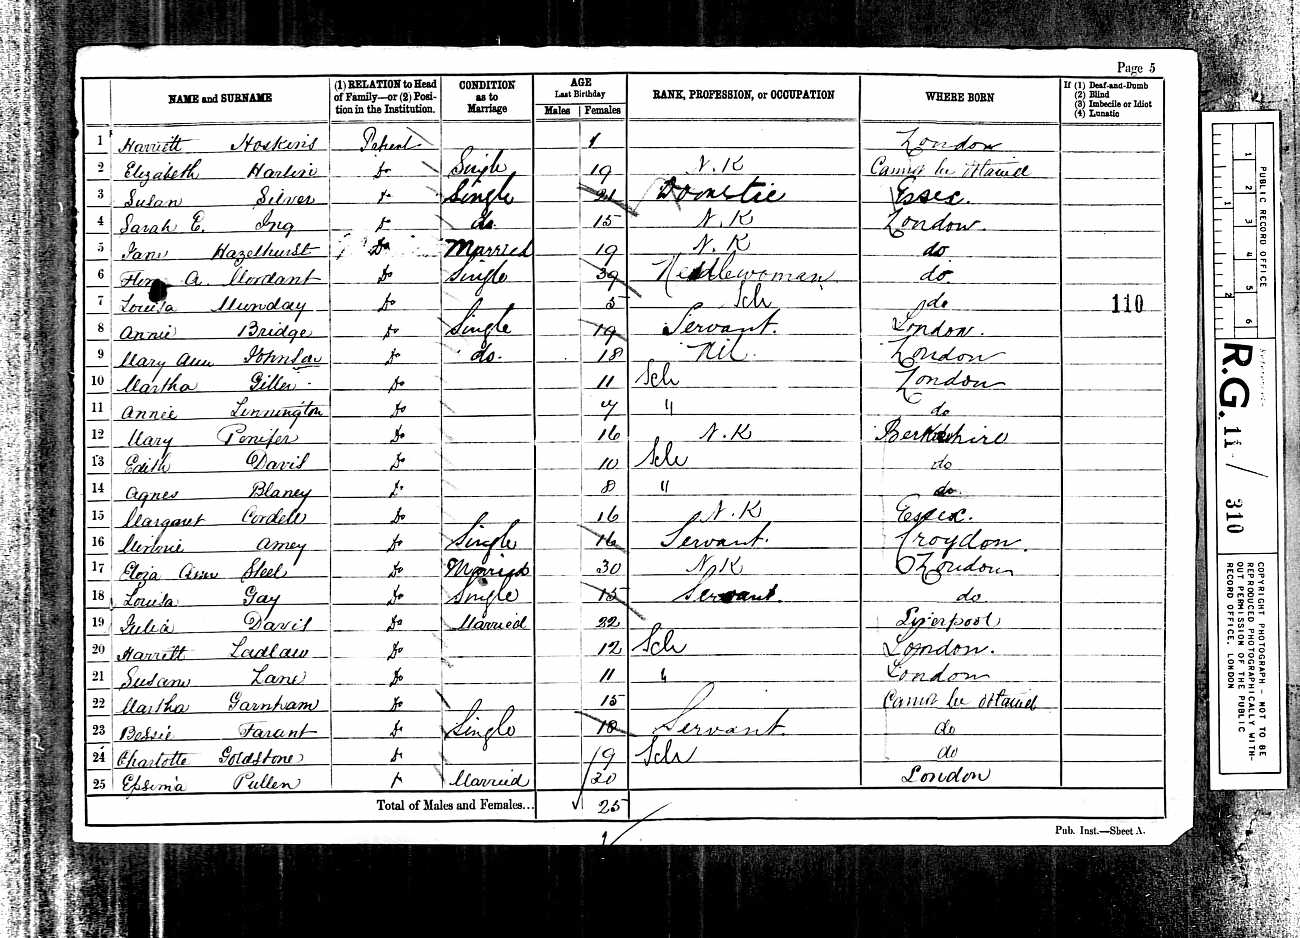 Page 5
NAME and SURNAME (1) RELATION to Head of Family—or (2) Position in the Institution. CONDITION as to Marriage AGE Last Birthday Males Females RANK, PROFESSION, or OCCUPATION WHERE BORN If (1) Deaf-and-Dumb (2) Blind (3) Imbecile or Idiot (4) Lunatic
1 Harriett Hoskins Patient 1 London
2 Elizabeth Harlin Do Single 19 N.K Cannot be obtained
3 Susan Silver Do Single 21 Domestic Essex.
4 Sarah E. Ing Do do. 15 N.K London.
5 Jane Hazelhurst Do Married 19 N.K do
6 A. Mordant Do Single 39 Needlewoman do.
7 Louisa Munday Do 5 Sch do 110
8 Annie Bridge Do Single 19 Servant. London.
9 Mary Ann Johnson Do do. 18 Nil. London
10 Martha Giller Do 11 Sch London
11 Annie Linnington Do 7 " do
12 Mary Ponifer Do 16 N.K Berkshire
13 Edith Davis Do 10 Sch do
14 Agnes Blaney Do 8 " do.
15 Margaret Cordell Do 16 N.K Essex.
16 Minnie Amey Do Single 16 Servant. Croydon.
17 Eliza Ann Steel Do Married 30 N.K London
18 Louisa Gay Do Single 15 Servant. do
19 Julia Davis Do Married 22 Liverpool
20 Harriett Ladlaw Do 12 Sch London.
21 Susan Lane Do 11 " London
22 Martha Garnham Do 15 Cannot be obtained
23 Bessie Farant Do Single 18 Servant. do
24 Charlotte Goldstone Do 9 Sch do
25 Pullen Married 30 London
Total of Males and Females... 25
Pub. Inst.—Sheet A.
PUBLIC RECORD OFFICE
1 2 3 4 5 6
1 2
Reference:-
R.G. 11 / 310
COPYRIGHT PHOTOGRAPH - NOT TO BE
REPRODUCED PHOTOGRAPHICALLY WITH-
OUT PERMISSION OF THE PUBLIC
RECORD OFFICE, LONDON